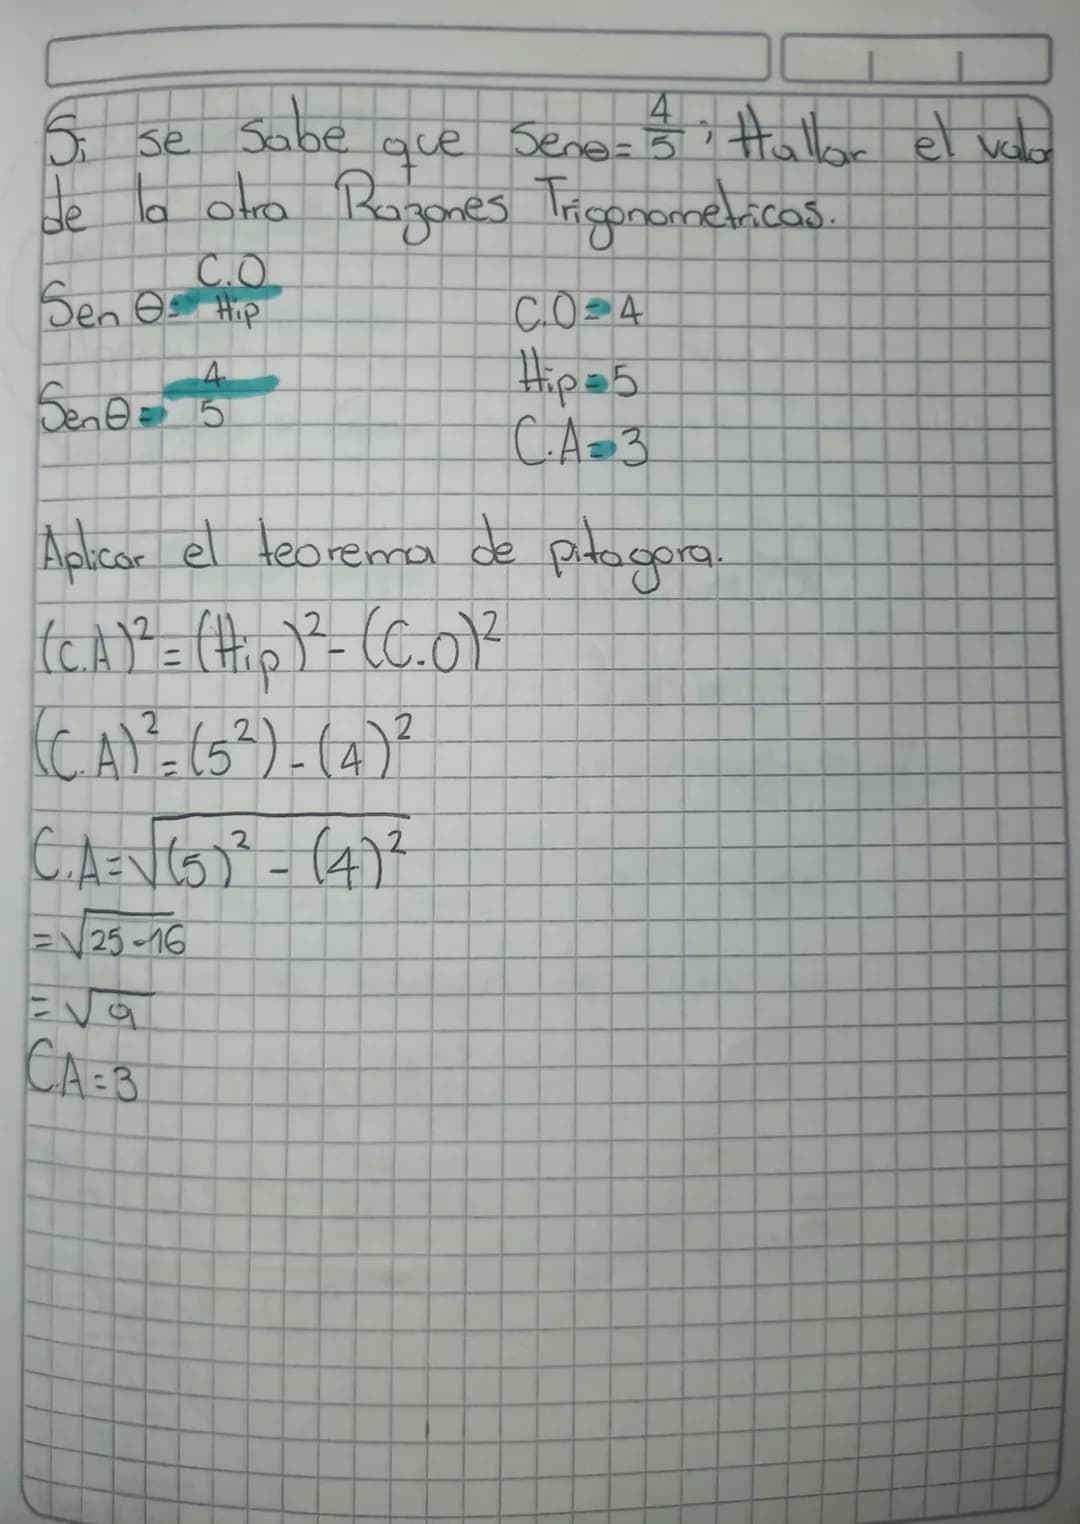 Si se sabe que Senθ = 4/5 ; Hallar el valor
de la otra Razones Trigonometricas.
Sen θ = C.O/Hip
C.O = 4
Hip = 5
Sen θ = 4/5
C.A = 3
Aplicar el teorema de pitagora.
(C.A)² = (Hip)² - (C.O)²
(C.A)² = (5²) - (4)²
C.A = √(5)² - (4)²
= √25-16
= √9
C.A = 3